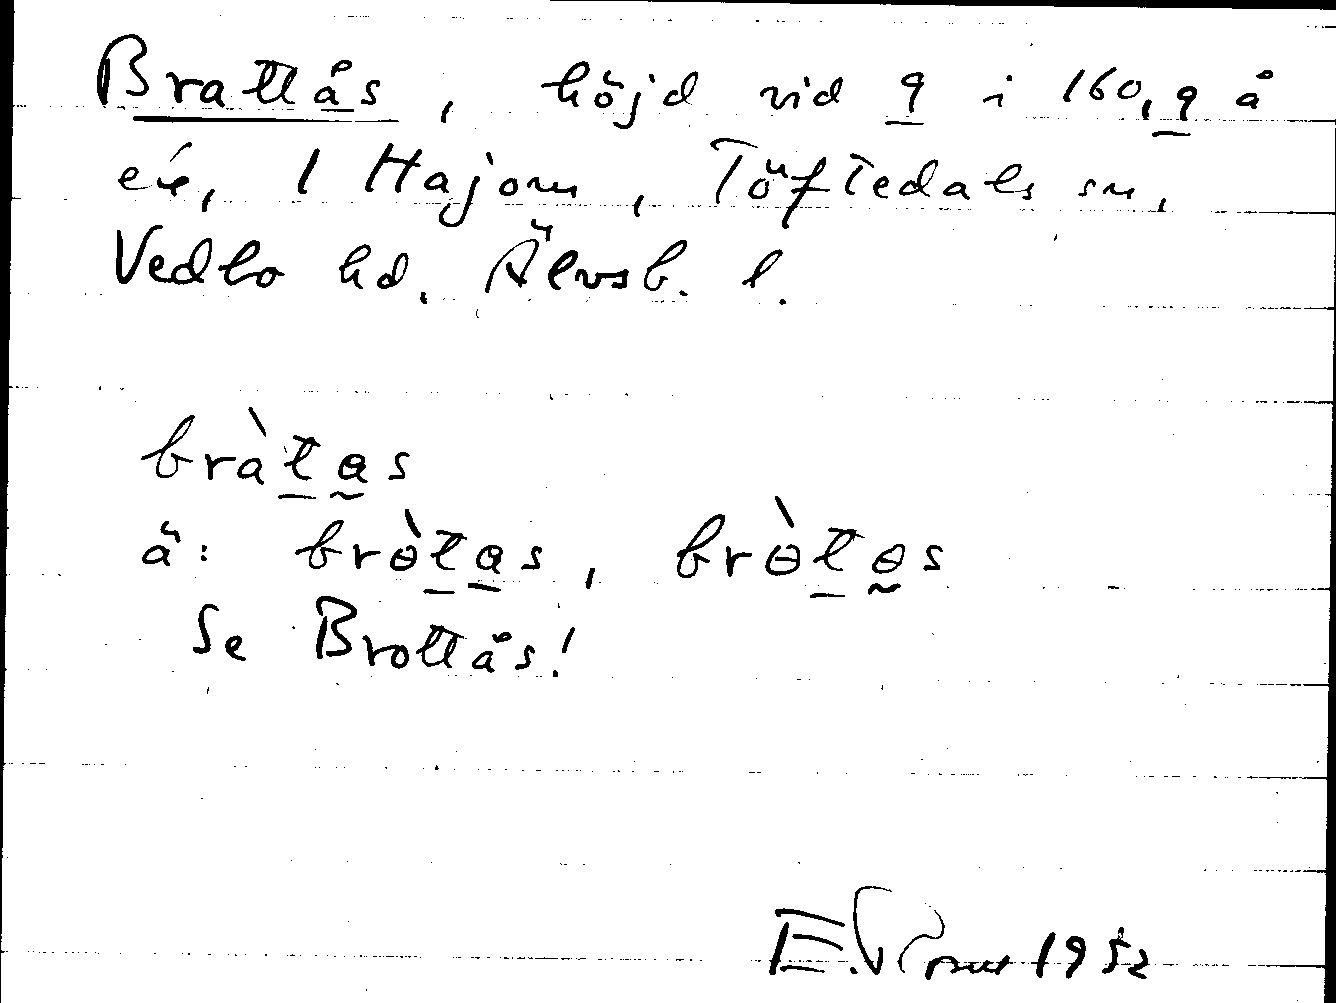 Brattås, höjd vid 9 i 160,9 å
ek, 1 Hajom, Töftedals sn,
Vedbo hd. Älvsb. l.
bràtas
ä: bròtas, bròtɵs
Se Brottås!
E. 1952